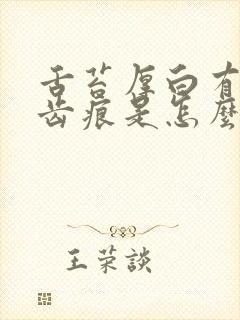 舌苔厚白有
齿痕是怎麼
王荣談